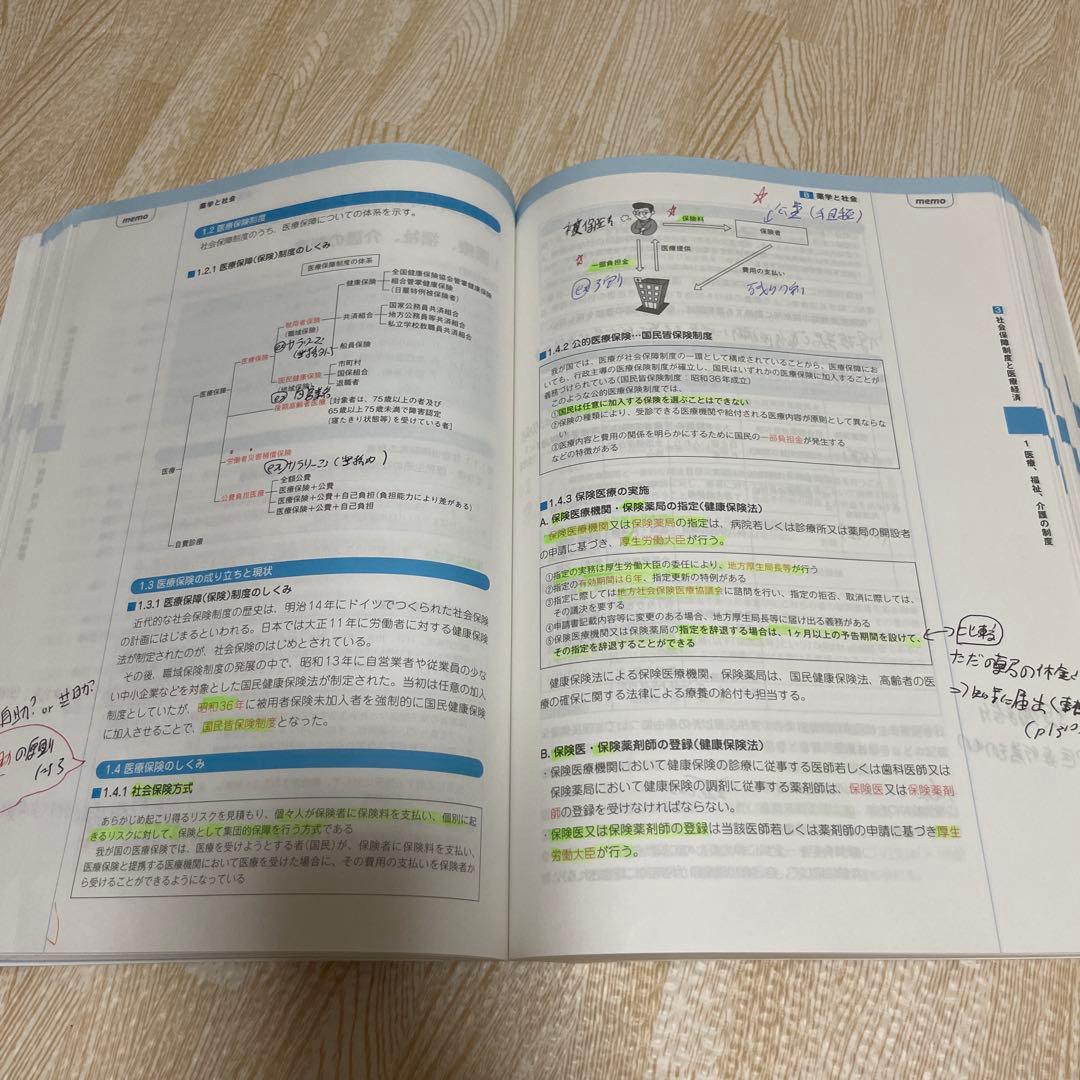 memo
薬学と社会
1.2 医療保険制度
社会保障制度のうち、医療保障についての体系を示す。
■1.2.1 医療保障(保険)制度のしくみ
医療保障制度の体系
医療
医療保障
医療保険
被用者保険
(職域保険)
健康保険
全国健康保険協会管掌健康保険
組合管掌健康保険
(日雇特例被保険者)
共済組合
国家公務員共済組合
地方公務員等共済組合
私立学校教職員共済組合
船員保険
国民健康保険
(地域保険)
市町村
国保組合
退職者
後期高齢者医療
[対象者は、75歳以上の者及び
65歳以上75歳未満で障害認定
(寝たきり状態等)を受けている者]
労働者災害補償保険
公費負担医療
全額公費
医療保険+公費
医療保険+公費+自己負担(負担能力により差がある)
医療保険+公費+自己負担
自費診療
1.3 医療保険の成り立ちと現状
■1.3.1 医療保障(保険)制度のしくみ
近代的な社会保険制度の歴史は、明治14年にドイツでつくられた社会保険
の計画にはじまるといわれる。日本では大正11年に労働者に対する健康保険
法が制定されたのが、社会保険のはじめとされている。
その後、職域保険制度の発展の中で、昭和13年に自営業者や従業員の少な
い中小企業などを対象とした国民健康保険法が制定された。当初は任意の加入
制度としていたが、昭和36年に被用者保険未加入者を強制的に国民健康保険
に加入させることで、国民皆保険制度となった。
自助? or 共助?
1.4 医療保険のしくみ
■1.4.1 社会保険方式
あらかじめ起こり得るリスクを見積もり、個々人が保険者に保険料を支払い、個別に起
きるリスクに対して、保険として集団的保障を行う方式である
我が国の医療保険では、医療を受けようとする者(国民)が、保険者に保険料を支払い、
医療保険と提携する医療機関において医療を受けた場合に、その費用の支払いを保険者か
ら受けることができるようになっている
B 薬学と社会
memo
被保険者
保険料
保険者
医療提供
一部負担金
費用の支払い
■1.4.2 公的医療保険…国民皆保険制度
我が国では、医療が社会保障制度の一環として構成されていることから、医療保障にお
いても、行政主導の医療保険制度が確立し、国民はいずれかの医療保険に加入することが
義務づけられている(国民皆保険制度:昭和36年成立)
このような公的医療保険制度では、
①国民は任意に加入する保険を選ぶことはできない
②保険の種類により、受診できる医療機関や給付される医療内容が原則として異ならな
い
③医療内容と費用の関係を明らかにするために国民の一部負担金が発生する
などの特徴がある
■1.4.3 保険医療の実施
A. 保険医療機関・保険薬局の指定(健康保険法)
保険医療機関又は保険薬局の指定は、病院若しくは診療所又は薬局の開設者
の申請に基づき、厚生労働大臣が行う。
①指定の実務は厚生労働大臣の委任により、地方厚生局長等が行う
②指定の有効期間は6年、指定更新の特例がある
③指定に際しては地方社会保険医療協議会に諮問を行い、指定の拒否、取消に際しては、
その議決を要する
④申請書記載内容等に変更のある場合、地方厚生局長等に届出る義務がある
⑤保険医療機関又は保険薬局の指定を辞退する場合は、1ヶ月以上の予告期間を設けて、
その指定を辞退することができる
健康保険法による保険医療機関、保険薬局は、国民健康保険法、高齢者の医
療の確保に関する法律による療養の給付も担当する。
B. 保険医・保険薬剤師の登録(健康保険法)
・保険医療機関において健康保険の診療に従事する医師若しくは歯科医師又は
保険薬局において健康保険の調剤に従事する薬剤師は、保険医又は保険薬剤
師の登録を受けなければならない。
・保険医又は保険薬剤師の登録は当該医師若しくは薬剤師の申請に基づき厚生
労働大臣が行う。
3
社会保障制度と医療経済
1 医療、福祉、介護の制度
比較